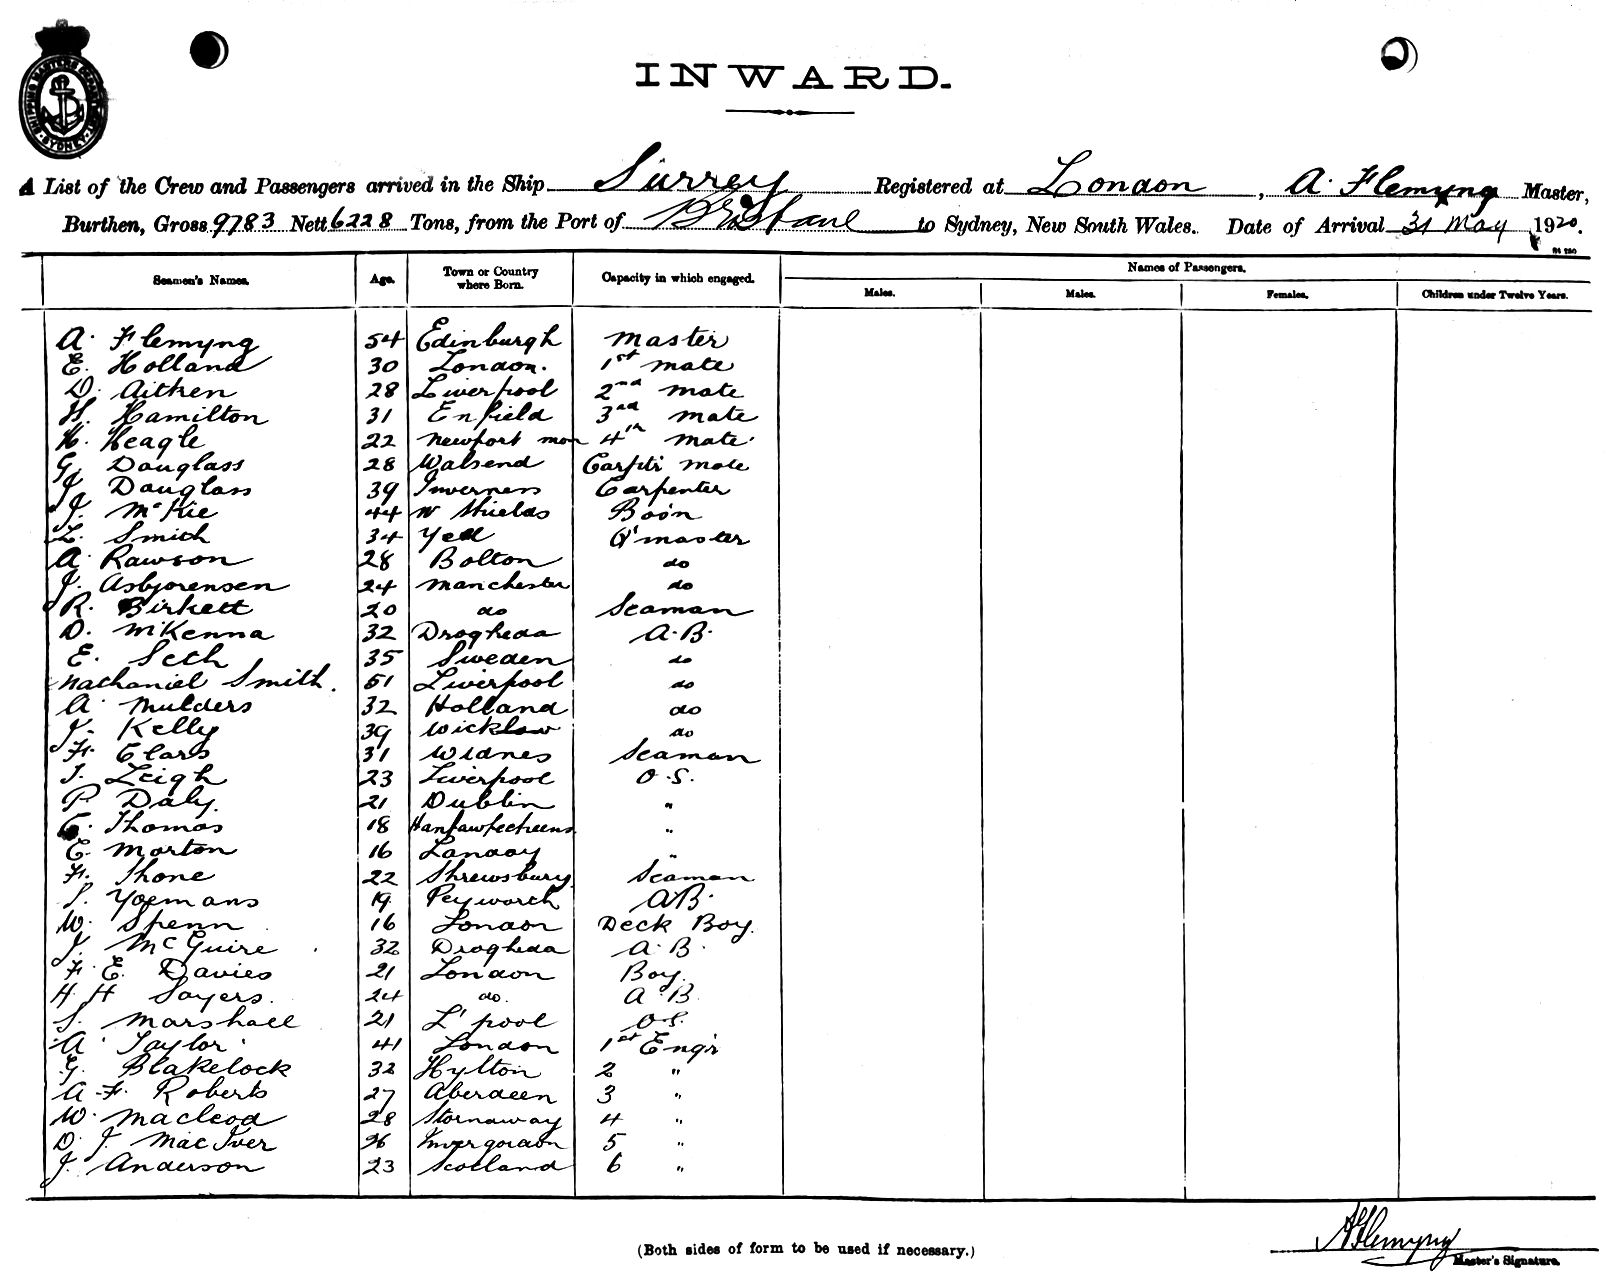 SHIPPING MASTERS DEPARTMENT SYDNEY
INWARD.
A List of the Crew and Passengers arrived in the Ship Surrey Registered at London, A. Flemyng Master,
Burthen, Gross 9783 Nett 6228 Tons, from the Port of Brisbane to Sydney, New South Wales. Date of Arrival 31 May 1920.
Seamen's Names. Age. Town or Country where Born. Capacity in which engaged. Names of Passengers.
Males. Males. Females. Children under Twelve Years.
A. Flemyng 54 Edinburgh Master
E. Holland 30 London. 1st mate
D. Aitken 28 Liverpool 2nd mate
H. Hamilton 31 Enfield 3rd mate
H. Heagle 22 Newport mon 4th mate.
G. Douglass 28 Walsend Carptr mate
J. Douglass 39 Inverness Carpenter
J. McKie 44 N Shields Bo'on
L. Smith 34 Yell Q'master
A. Rawson 28 Bolton do
J. Asbjorensen 24 Manchester do
R. Birkett 20 do Seaman
D. McKenna 32 Drogheda A.B.
E. Seth 35 Sweden do
Nathaniel Smith. 51 Liverpool do
A. Mulders 32 Holland do
J. Kelly 39 Wicklow do
31 Widnes Seaman
J. Leigh 23 Liverpool O.S.
P. Daly. 21 Dublin "
Thomas 18 "
E. Morton 16 "
F. Thone 22 Shrewsbury Seaman
S. Yoemans 19 AB.
W. Spenn 16 London Deck Boy.
J. McGuire 32 Drogheda A.B.
F. E. Davies 21 London Boy.
H H Sayers. 24 do. A.B.
S. Marshall 21 L'pool O.S.
A. Taylor 41 London 1st Engr
G. Blakelock 32 Hylton 2 "
A. F. Roberts 27 Aberdeen 3 "
W. Macleod 28 Stornaway 4 "
D. J. MacIver 26 Invergordon 5 "
J. Anderson 23 Scotland 6 "
AFlemyng
(Both sides of form to be used if necessary.)
Master's Signature.